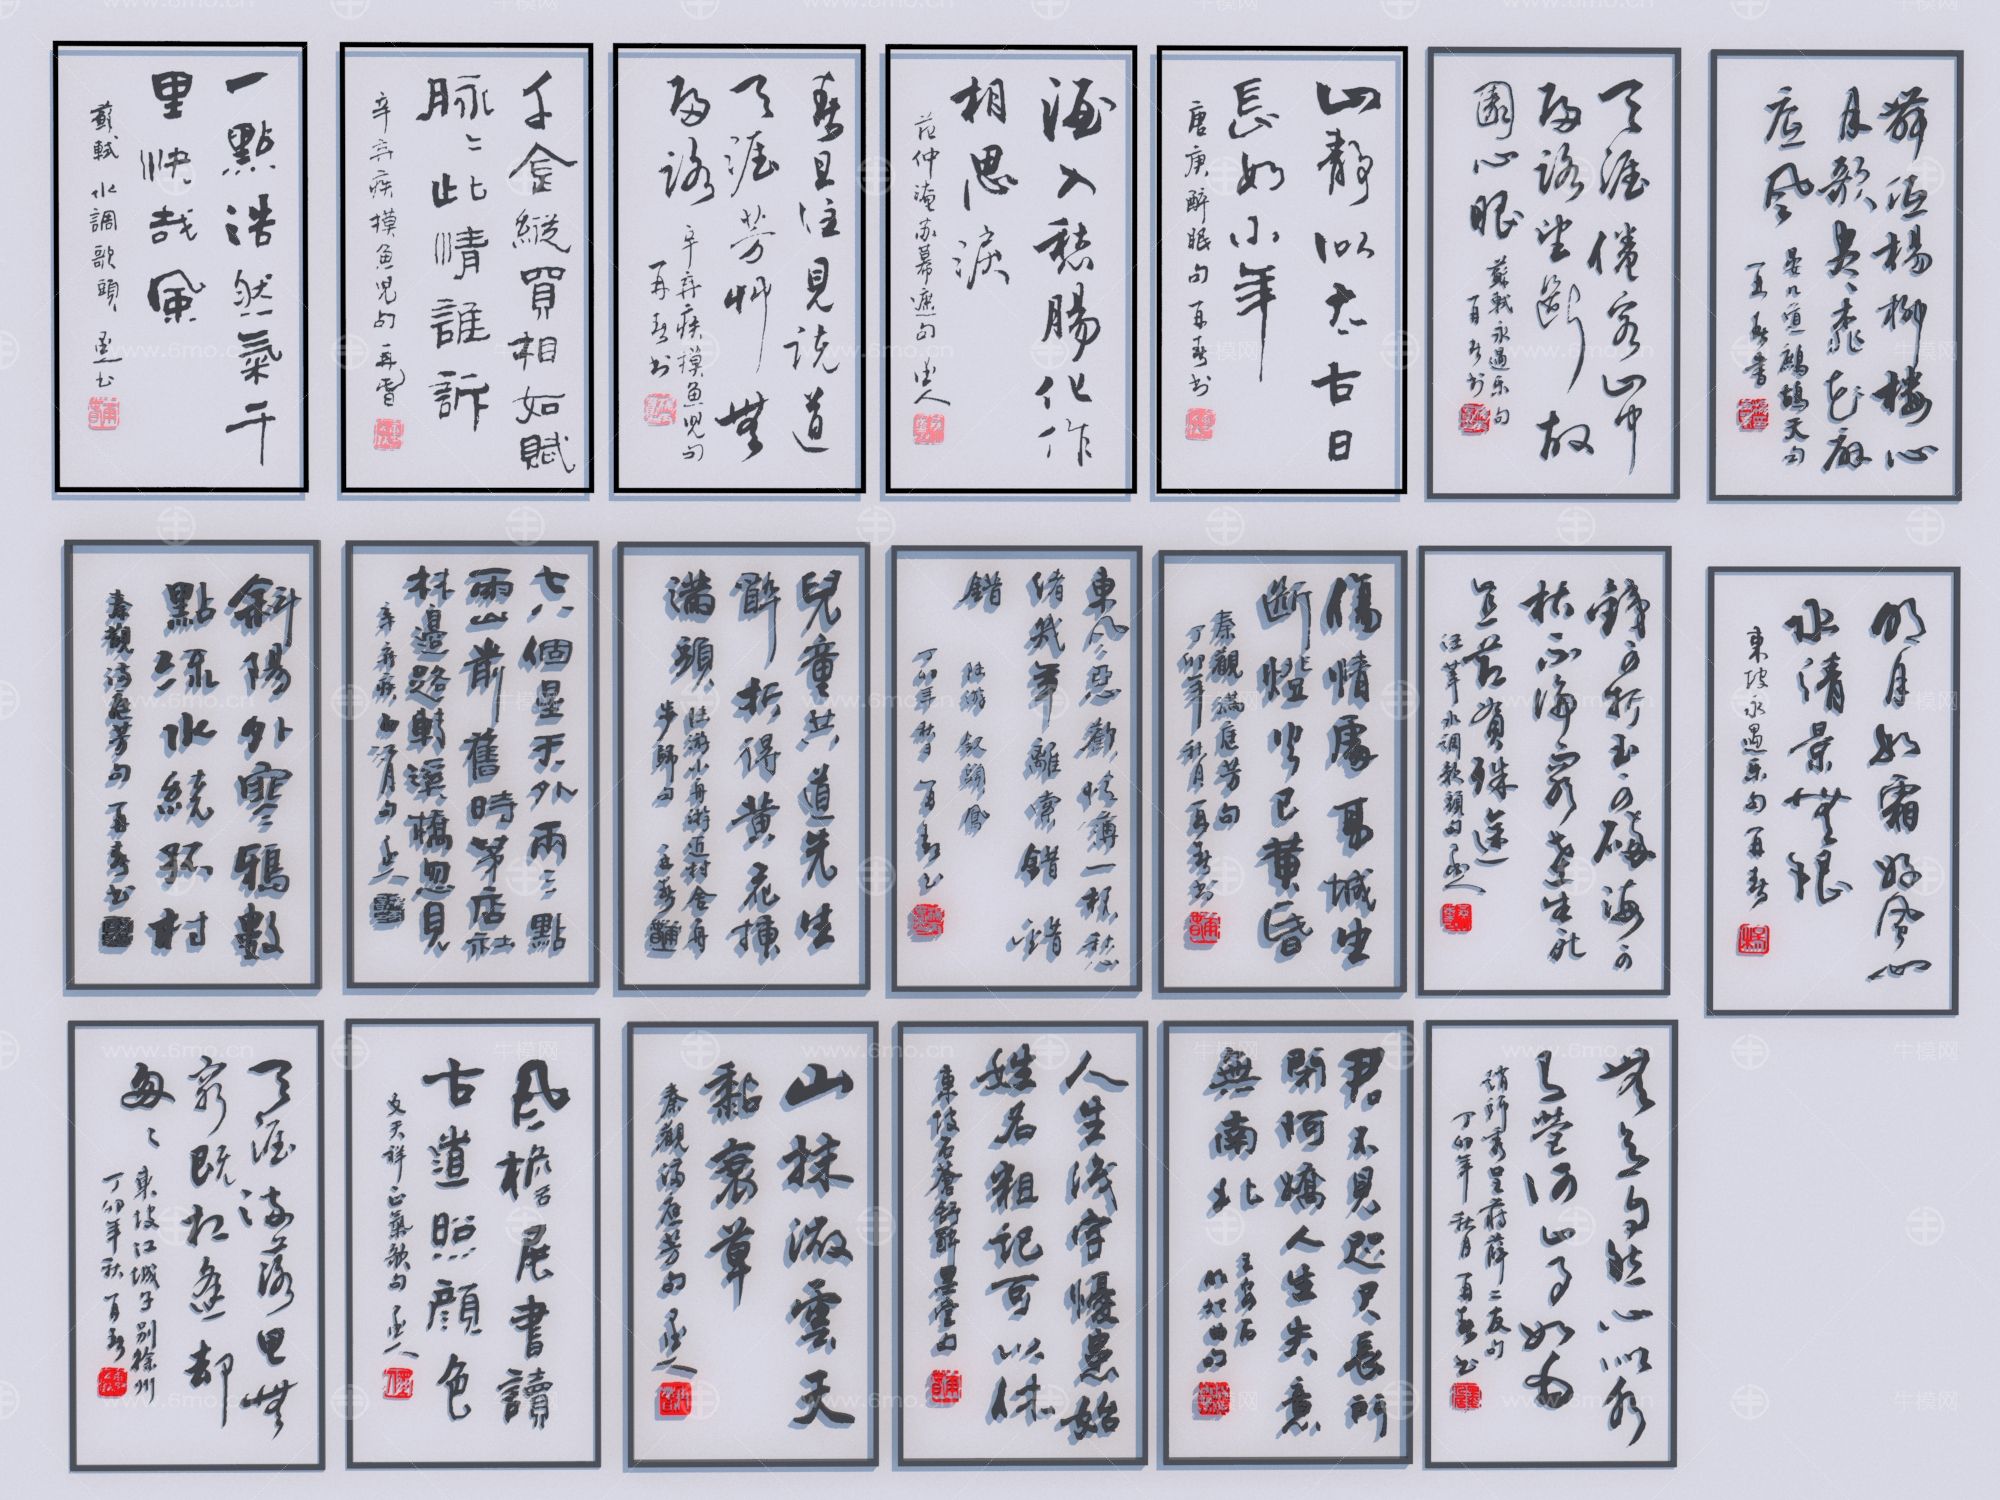 一點浩然氣千
里快哉風
蘇軾 水調歌頭
千金縱買相如賦
脉ミ此情誰訴
辛弃疾摸魚児句
春且住見説道
天涯芳艸無
歸路
辛弃疾摸魚児句
再春书
酒入愁腸化作
相思淚
范仲淹苏幕遮句
山静似太古日
長如小年
唐庚醉眠句 再春书
天涯倦客山中
歸路望断故
園心眼
蘇軾永遇乐句
再春书
舞低楊柳楼心
月歌盡桃花扇
底風
晏几道鷓鴣天句
再春書
斜陽外寒鴉數
點流水繞孤村
秦觀满庭芳句 再春书
七八個星天外兩三點
雨山前舊時茅店社
林邊路轉溪橋忽見
辛弃疾西江月句
兒童共道先生
醉折得黄花插
满頭
陆游小舟游近村舍舟
步歸句
東风惡歡情薄一杯愁
绪幾年離索錯錯
錯
陆游钗頭鳳
丁卯年秋月 再春书
傷情處高城望
断燈火已黄昏
秦觀满庭芳句
丁卯年秋月 再春书
汪莘水調歌頭句
明月如霜好風如
水清景無限
東坡永遇乐句 再春
天涯流落思無
窮既相逢却
匆ミ
東坡江城子别徐州
丁卯年秋 再春
風檐展書讀
古道照顔色
文天祥正氣歌句
山抹微雲天
黏衰草
秦觀满庭芳句
人生識字憂患始
姓名粗记可以休
東坡石蒼舒醉墨堂句
君不見咫尺長門
閉阿嬌人生失意
無南北
王安石
明妃曲句
丁卯年秋月 再春书